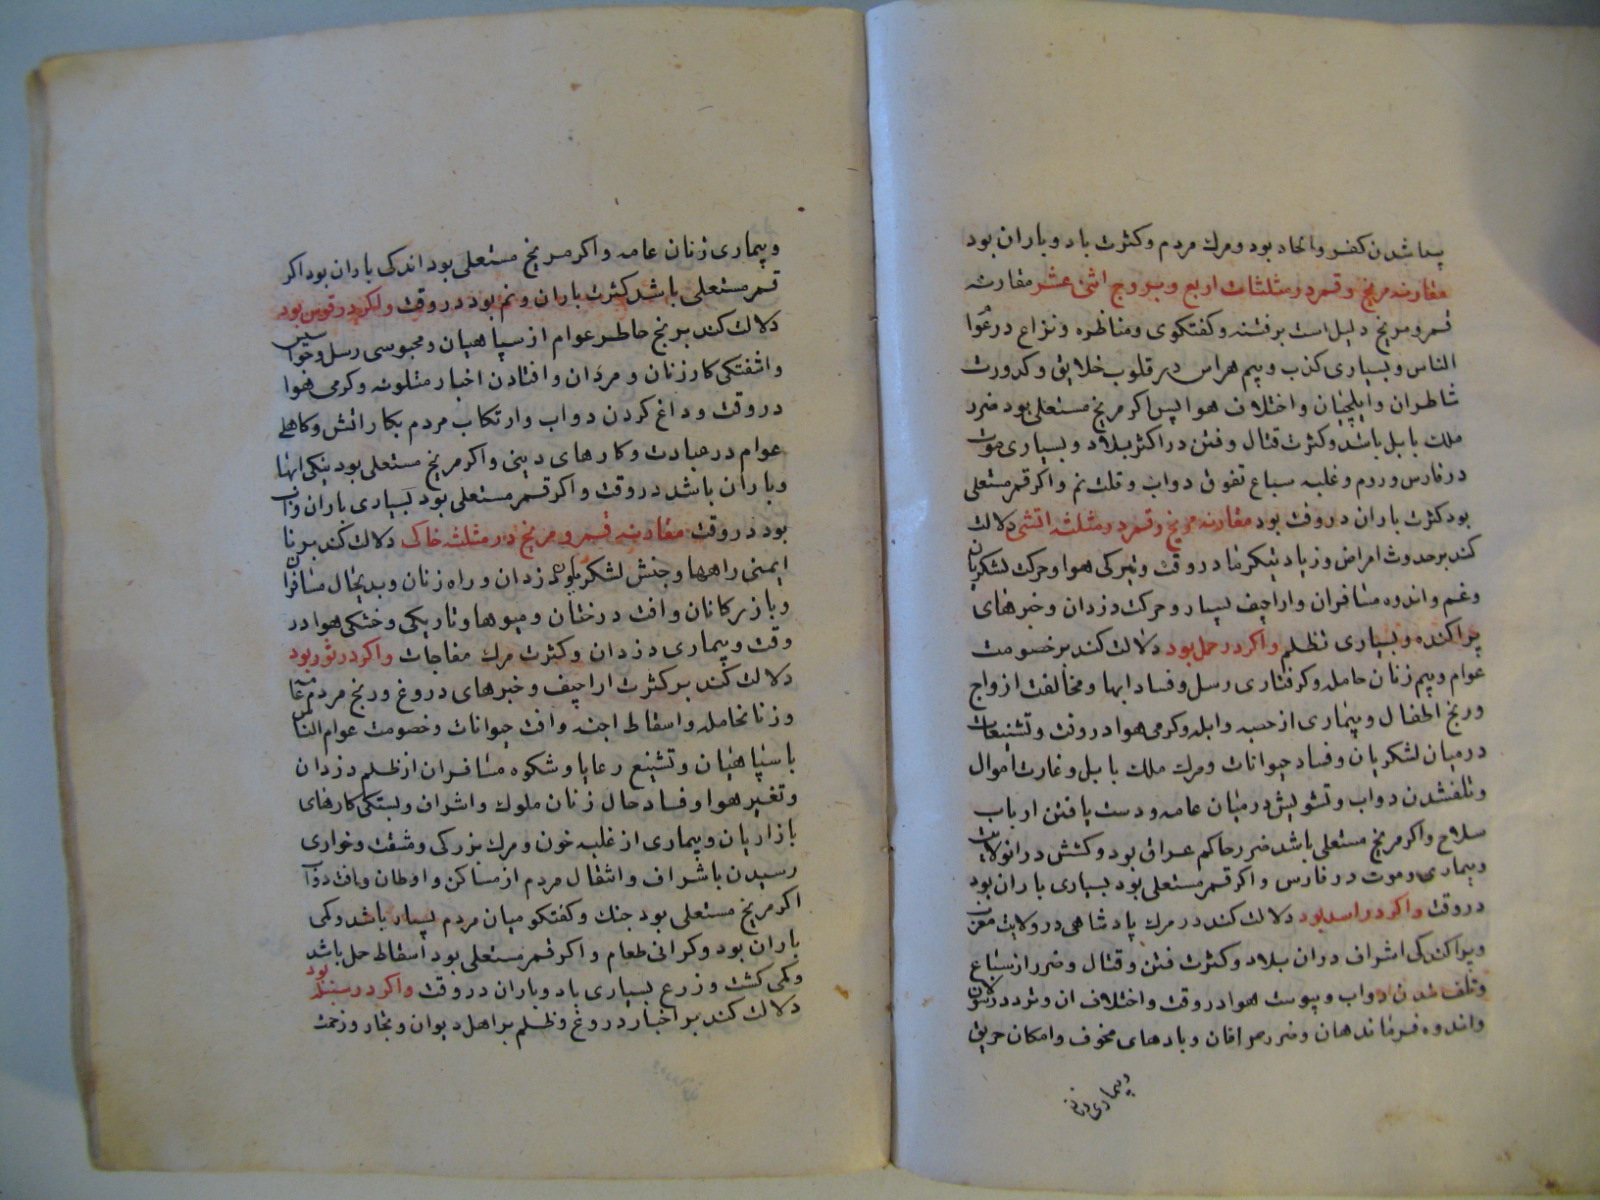 پیدا شدن کفر و الحاد بود و مرك مردم و کثرت باد و باران بود
مقارنه مریخ و قمر در مثلثات اربع و بروج اثنی عشر مقارنه
قمر و مریخ دلیل است بر فتنه و کفتکوی و مناظره و نزاع در عوا
الناس و بسیاری کذب و بیم هراس در قلوب خلایق و کدورت
شاطران و ایلچیان و اختلاف هوا پس اکر مریخ مستعلی بود ضرر
ملك بابل باشد و کثرت قتال و فتن در اکثر بلاد و بسیاری موت
در فارس و روم و غلبه سباع تفوق دواب و قلت نم و اکر قمر مستعلی
بود کثرت باران در وقت بود مقارنه مریخ و قمر در مثلثه اتشی دلالت
کند بر حدوث امراض و زیاد شدن کرما در وقت و تیرکی هوا و حرکت لشکریان
وغم و اندوه مسافران و اراجیف بسیار و حرکت دزدان و خبرهای
پراکنده و بسیاری تظلم و اکر در حمل بود دلالت کند بر خصومت
عوام و بیم زنان حامله و کرفتاری رسل و فساد ابها و مخالفت ازواج
ورنج اطفال و بیماری از حصبه و ابله و کرمی هوا در وقت و تشنیعات
در میان لشکریان و فساد حیوانات و مرك ملك بابل و غارت اموال
و تلف شدن دواب و تشویش در میان عامه و دست یافتن ارباب
سلاح و اکر مریخ مستعلی باشد ضرر حاکم عراق بود و کشش در انولایت
و بیماری و موت در فارس و اکر قمر مستعلی بود بسیاری باران بود
در وقت و اکر در اسد بود دلالت کند در مرك پادشاهی در ولایت مغرب
و پراکندکی اشراف دران بلاد و کثرت فتن و قتال و ضرر از سباع
و تلف شدن دواب و یبوست هوا در وقت و اختلاف ان و تردد رسولان
و اندوه فرماندهان و ضرر صرافان و بادهای مخوف و امکان حریق
و بیماری زنان
و بیماری زنان عامه و اکر مریخ مستعلی بود اندکی باران بود اکر
قمر مستعلی باشد کثرت باران و نم بود در وقت و اکر در قوس بود
دلالت کند بر رنج خاطر عوام از سپاهیان و محبوسی رسل و جواسیس
و اشفتکی کار زنان و مردان و افتادن اخبار متلونه و کرمی هوا
در وقت و داغ کردن دواب و ارتکاب مردم بکار اتش و کاهلی
عوام در عبادت و کارهای دینی و اکر مریخ مستعلی بود نیکی ابها
و باران باشد در وقت و اکر قمر مستعلی بود بسیاری باران و اب
بود در وقت مقارنه قمر و مریخ در مثلثه خاکی دلالت کند بر نا
ایمنی راهها و جنبش لشکر بکون دزدان و راه زنان و بدیحال مسافران
و بازرکانان و افت درختان و میوها و تاریکی و خشکی هوا در
وقت و بیماری دزدان و کثرت مرك مفاجات و اکر در ثور بود
دلالت کند بر کثرت اراجیف و خبرهای دروغ و رنج مردم
و زنان حامله و اسقاط اجنه و افت حیوانات و خصومت عوام الناس
با سپاهیان و تشنیع رعایا و شکوه مسافران از ظلم دزدان
و تغیر هوا و فساد حال زنان ملوك و اشراف و بستکی کارهای
بازاریان و بیماری از غلبه خون و مرك بزرکی و مشقت و خواری
رسیدن باشراف و انتقال مردم از مساکن و اوطان و افت دواب
اکر مریخ مستعلی بود جنك و کفتکو میان مردم بسیار باشد و کمی
باران بود و کرانی طعام و اکر قمر مستعلی بود اسقاط حمل باشد
و کمی کشت و زرع بسیاری باد و باران در وقت و اکر در سنبله بود
دلالت کند بر اخبار دروغ و ظلم بر اهل دیوان و تجار و زحمت